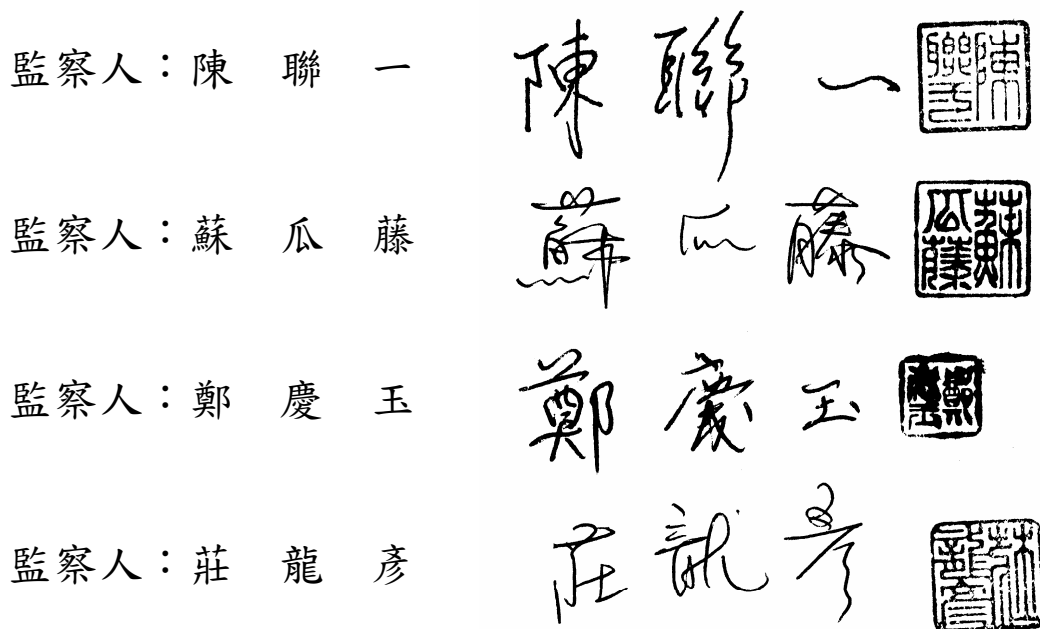 監察人：陳 聯 一 陳聯一 陳聯一
監察人：蘇 瓜 藤 蘇瓜藤 蘇瓜藤
監察人：鄭 慶 玉 鄭慶玉 鄭慶玉
監察人：莊 龍 彥 莊龍彥 莊龍彥